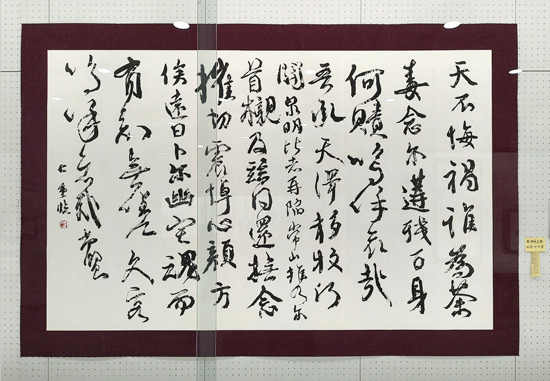 天不悔禍誰為荼
毒念尔遘殘百身
何贖嗚呼哀哉
吾承天澤移牧河
關泉明比者再陷常山携尔
首櫬及茲同還撫念
摧切震悼心顏方
俟遠日卜尔幽宅魂而
有知無嗟久客
嗚呼哀哉尚饗